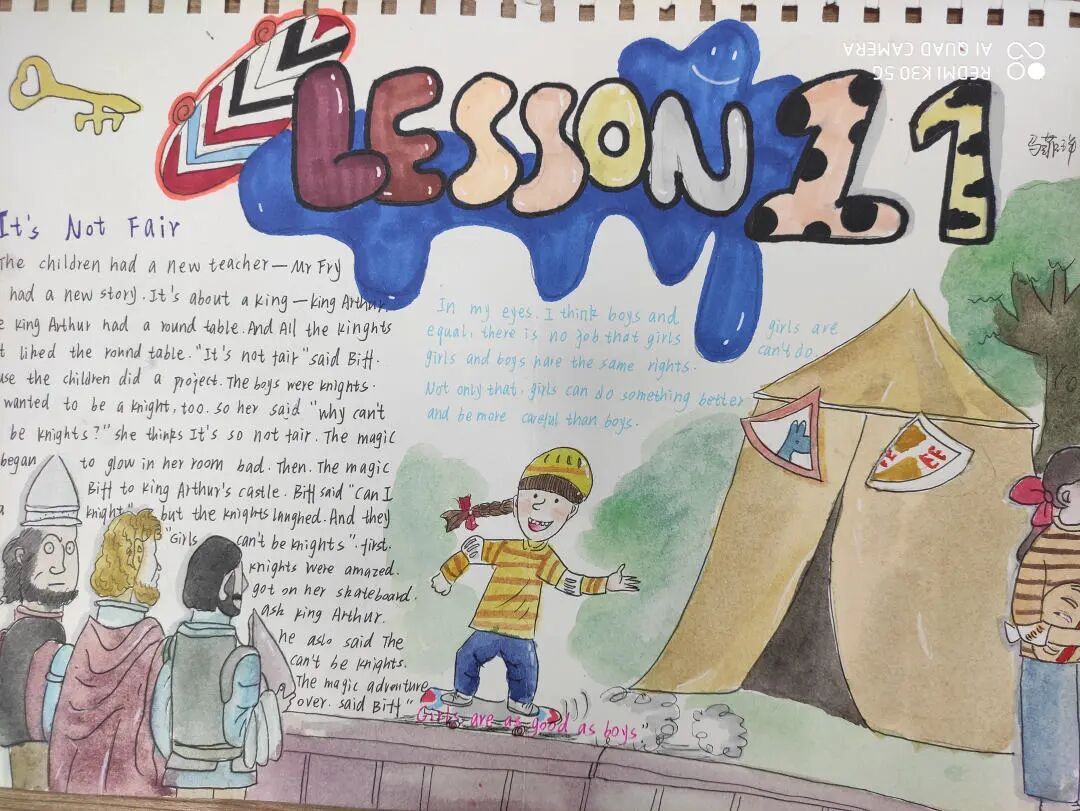 LESSON 11
It's Not Fair
The children had a new teacher — Mr Fry
had a new story. It's about a king — king Arthur
king Arthur had a round table. And All the kinghts
liked the round table. "It's not fair" said Biff.
use the children did a project. The boys were knights.
wanted to be a knight, too. so her said "why can't
be knights?" she thinks It's so not fair. The magic
began to glow in her room bad. Then. The magic
Biff to king Arthur's castle. Biff said "can I
knight" but the knights laughed. And they
"Girls can't be knights". first.
knights were amazed.
got on her skateboard.
ask king Arthur.
he aslo said The
can't be knights.
The magic adventure
over. said Biff "
Girls are as good as boys"
In my eyes. I think boys and girls are
equal, there is no job that girls can't do.
girls and boys have the same rights.
Not only that, girls can do something better
and be more careful than boys.
REDMI K30 5G
AI QUAD CAMERA